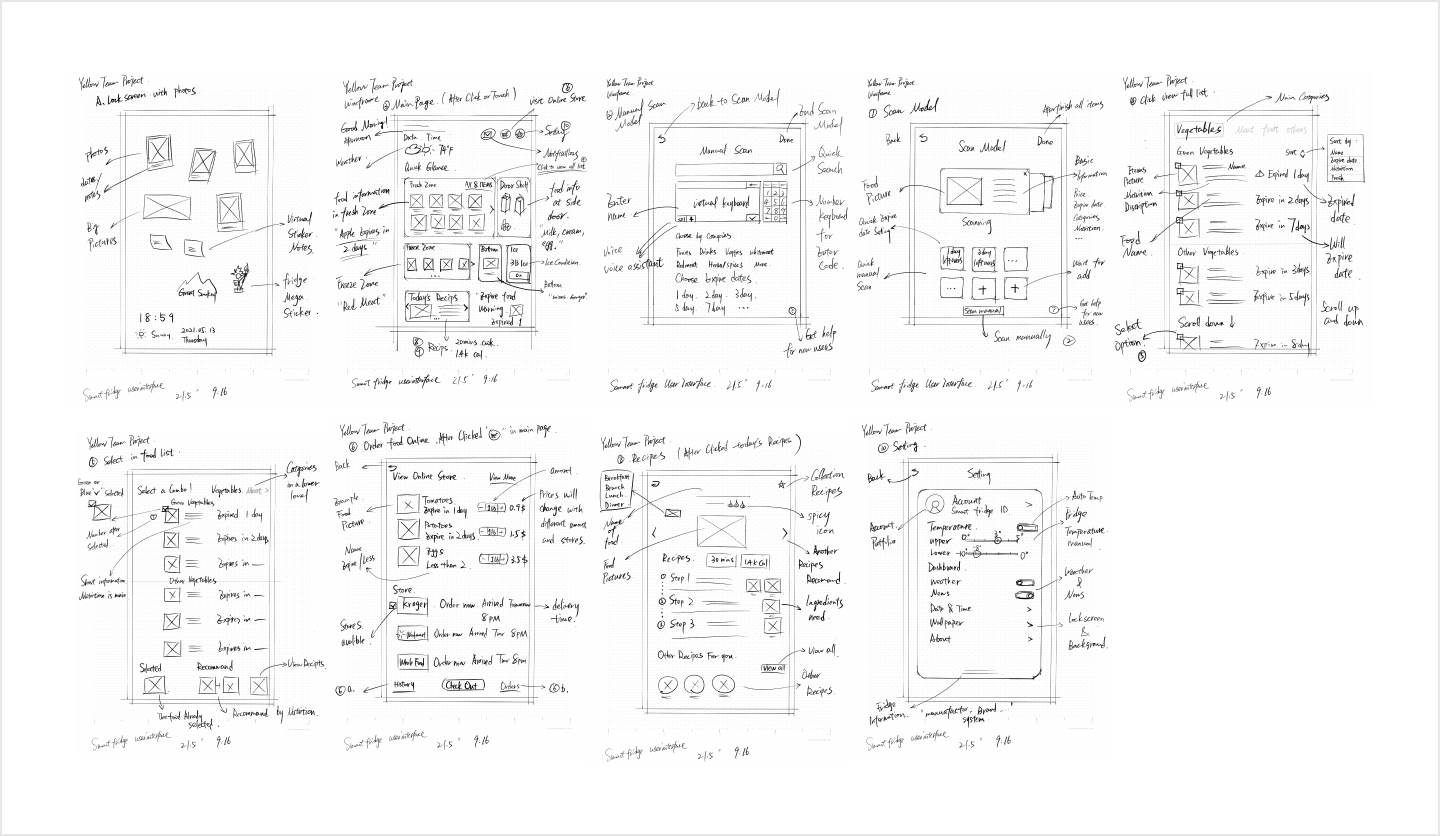 Yellow Team Project.
A. Lock screen with photos
photos
dates/
notes
Big
Pictures
Virtual
Sticker
Notes.
fridge
Mega
Sticker.
18:59
Sunny.
2021.05.13
Thursday
Smart fridge user interface 21.5" 9:16
Yellow Team Project
Wireframe Main Page. (After Click or Touch)
Good Morning!
Afternoon
Weather
Date Time
74°F
Quick Glance.
visit Online Store.
Seting
Notifications
Click to view all list
food information
in fresh zone
"Apple Expires in
2 days"
Fresh Zone All 8 ITEMS
Door Shelf
food info
at side
door.
"Milk, cream,
egg."
Freeze Zone
Bottom
Ice
3lb Ice
on
Ice Condition.
Freeze Zone
"Red Meat"
Bottom
Today's Recips
"Expire food
Warning.
Expired 1
Recips. 20 mins cook.
1.4k Cal.
Smart fridge user interface 21.5" 9:16
Yellow Team Project
Wireframe.
② Manual Scan
Model
back to Scan Model
End Scan
Model
Done
Manual Scan
Quick
Search
Enter
name
virtual keyboard
Number
Keyboard
for
Enter
Code.
Voice
voice assistant
Choose by Categories
Fruits Drinks Veggies whitemeat
Redmeat Herbal/spices More.
Choose Expire dates.
1 day. 2 day. 3 day.
5 day. 7 day ...
Get help
for new users
Smart fridge User Interface. 21.5" 9:16
Yellow Team Project
Wireframe.
① Scan Model
After finish all items
Back
Scan Model
Done
Food
Picture
Basic
Information
Price
Expire date.
Categories
Nutrition.
...
Quick Expire
date Seting
Scanning
1 day
leftovers
3 day
leftovers
...
Quick
manual
Scan
... + +
Wait for
add.
Scan manual
? Get help
for new
users.
Scan manually ②
Smart fridge User Interface 21.5" 9:16
Yellow Team Project.
Click view full list.
Main Categories
Vegetables Meat fruit others
Green Vegetables
Sort
Sort by:
Name
Expire date
Nutrition
Fresh
Items
Picture
Name
Expired 1 day
Nutrition
Discription
Expire in 2 days
Expired
date
Food
Name.
Expire in 7 days
Will
Expire
date.
Other Vegetables
Expire in 3 days
Expire in 5 days
Scroll up
and down
Select
Option.
⑤
Scroll down ↓
Expire in 8 day
Smart fridge user interface 21.5" 9:16
Yellow Team Project.
Select in food List.
Categories
in a lower
level
Green or
Blue "✓" Selected
Select a Combo! Vegetables Meat >
Green Vegetables
Expired 1 day
Number after
selected
Expires in 2 days
Expires in —
Short information
Nutrition is main
Other Vegetables
Expires in —
Expires in —
Expires in —
Selected
Recommand
View Recipts.
The food Already
selected.
Recommand by Nutrition.
Smart fridge user interface 21.5" 9:16
Yellow Team Project.
⑥ Order food Online. After Clicked "" in main page.
Back
View Online Store.
View More
amount.
Example.
Food
Picture.
Tomatoes
Expire in 1 day
- 1lb + 0.9$
Prices will
change with
different amount
and stores.
Potatoes
Expire in 2 days.
- 1lb + 1.5$
Name
Expire/Less
Eggs
Less than 2.
3.5$
Store.
Kroger. Order now. Arrived Tomorrow
8 PM
delivery
time.
Stores
avalible
Walmart Order now Arrived Tmr 8PM
Whole Food Order now Arrived Tmr 8pm
⑥ a. History Check Out Orders ⑥ b.
Smart fridge user interface 21.5" 9:16
Yellow Team Project.
Recipes (After Clicked today's Recipes)
Breakfast
Brunch
Lunch.
Dinner
Collection
Recipes
Name
of
food.
spicy
icon
Food
Pictures.
Another
Recipes
Recomand.
Recipes. 30 mins 1.4k Cal
Step 1
Step 2
Step 3
Ingredients
need.
Other Recipes For you.
View all
View all.
Other
Recipes.
Smart fridge user interface 21.5" 9:16
Yellow Team Project.
⑩ Seting.
Back
Seting
Account
Smart fridge ID.
>
Auto Temp
Fridge
Temperature
manual
Account
Portfolio
Temperature.
upper 0° 3° 5°
Lower -10° 0°
Dashboard.
Weather
News
Weather
&
News
Date & Time >
Wallpaper >
About >
Lock screen
&
Background.
Fridge
Information.
"manufactor, Brand..."
system
Smart fridge user interface 21.5" 9:16